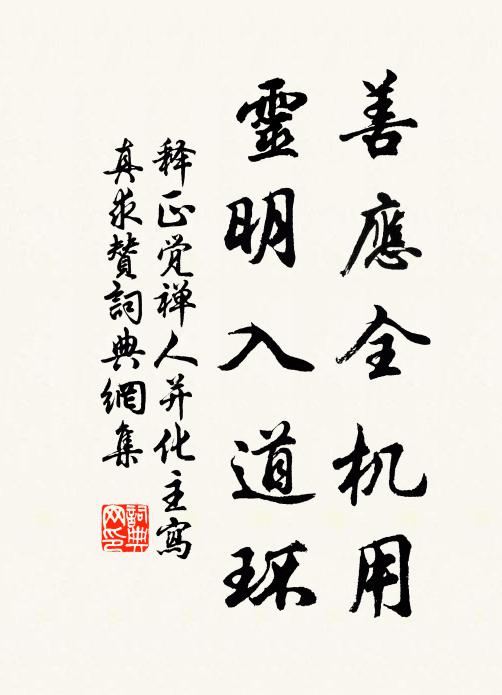 善應全机用
靈明入道环
释正觉禅人并化主寫
真求赞詞典網集
詞典
网印